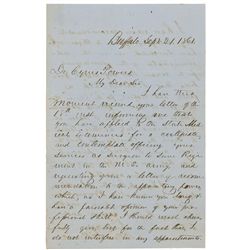 Buffalo Sept 21, 1861
Dr Cyrus Powers
My Dear Sir
I have this
moment received your letter of the
17th inst informing me that
you have applied to the State Med
ical Examiners for a certificate,
and contemplate offering your
services as Surgeon to some Regi
ment in the U.S. army, and
requesting from me a letter of recom
mendation to the appointing power
which, as I have known you long &
have a favorable opinion of your pro
fessional skill, I should most cheer
fully give, but for the fact that I
do not interfere in any appointments